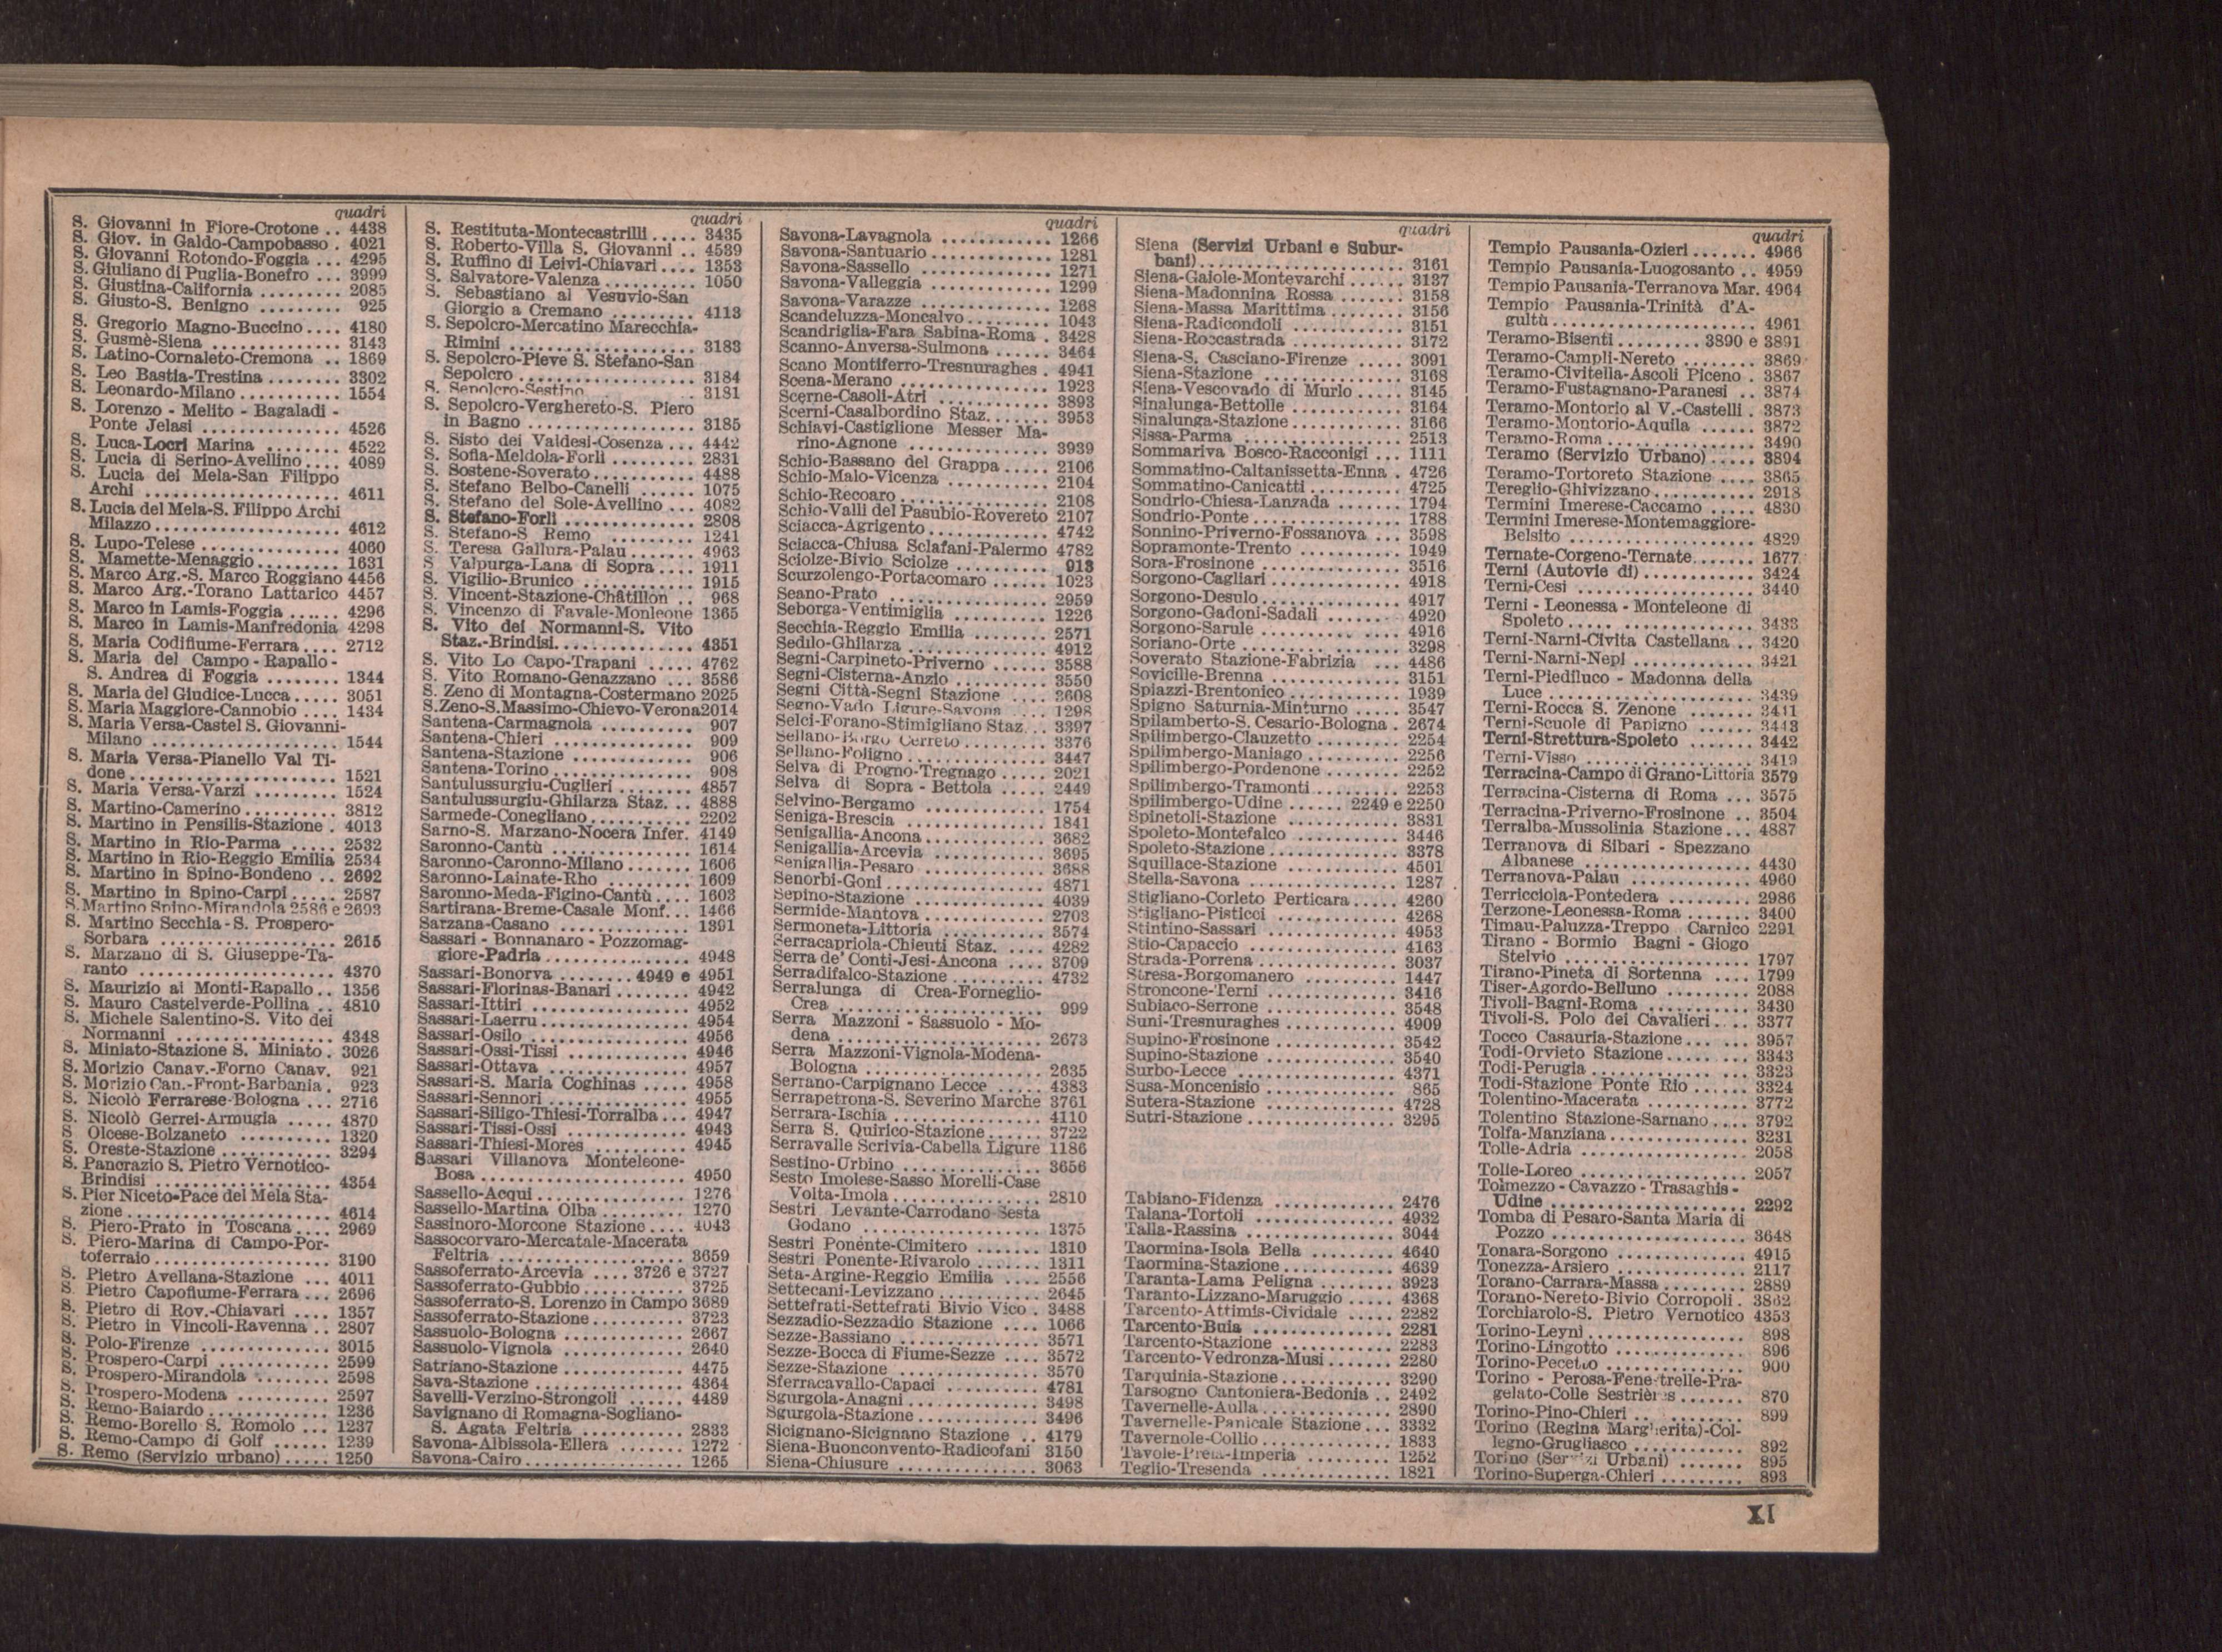 quadri
S. Giovanni in Fiore-Crotone .. 4438
S. Giov. in Galdo-Campobasso . 4021
S. Giovanni Rotondo-Foggia ... 4295
S. Giuliano di Puglia-Bonefro ... 3999
S. Giustina-California ......... 2085
S. Giusto-S. Benigno ......... 925
S. Gregorio Magno-Buccino .... 4180
S. Gusmè-Siena .............. 3143
S. Latino-Cornaleto-Cremona .. 1869
S. Leo Bastia-Trestina ........ 3302
S. Leonardo-Milano ........... 1554
S. Lorenzo - Melito - Bagaladi -
Ponte Jelasi ................. 4526
S. Luca-Locri Marina ........ 4522
S. Lucia di Serino-Avellino .... 4089
S. Lucia del Mela-San Filippo
Archi .................... 4611
S. Lucia del Mela-S. Filippo Archi
Milazzo .................... 4612
S. Lupo-Telese ............... 4060
S. Mamette-Menaggio ......... 1631
S. Marco Arg.-S. Marco Roggiano 4456
S. Marco Arg.-Torano Lattarico 4457
S. Marco in Lamis-Foggia ...... 4296
S. Marco in Lamis-Manfredonia 4298
S. Maria Codifiume-Ferrara .... 2712
S. Maria del Campo - Rapallo -
S. Andrea di Foggia ........ 1344
S. Maria del Giudice-Lucca ..... 3051
S. Maria Maggiore-Cannobio .... 1434
S. Maria Versa-Castel S. Giovanni-
Milano ................... 1544
S. Maria Versa-Pianello Val Ti-
done ..................... 1521
S. Maria Versa-Varzi ......... 1524
S. Martino-Camerino .......... 3812
S. Martino in Pensilis-Stazione . 4013
S. Martino in Rio-Parma ..... 2532
S. Martino in Rio-Reggio Emilia 2534
S. Martino in Spino-Bondeno .. 2692
S. Martino in Spino-Carpi ..... 2587
S. Martino Spino-Mirandola 2586 e 2693
S. Martino Secchia - S. Prospero-
Sorbara .................. 2615
S. Marzano di S. Giuseppe-Ta-
ranto .................... 4370
S. Maurizio ai Monti-Rapallo .. 1356
S. Mauro Castelverde-Pollina .. 4810
S. Michele Salentino-S. Vito dei
Normanni ................ 4348
S. Miniato-Stazione S. Miniato . 3026
S. Morizio Canav.-Forno Canav. 921
S. Morizio Can.-Front-Barbania . 923
S. Nicolò Ferrarese-Bologna ... 2716
S. Nicolò Gerrei-Armugia ..... 4870
S. Olcese-Bolzaneto .......... 1320
S. Oreste-Stazione ............ 3294
S. Pancrazio S. Pietro Vernotico-
Brindisi .................. 4354
S. Pier Niceto-Pace del Mela Sta-
zione ..................... 4614
S. Piero-Prato in Toscana .... 2969
S. Piero-Marina di Campo-Por-
toferraio .................. 3190
S. Pietro Avellana-Stazione ... 4011
S. Pietro Capofiume-Ferrara ... 2696
S. Pietro di Rov.-Chiavari .... 1357
S. Pietro in Vincoli-Ravenna .. 2807
S. Polo-Firenze .............. 3015
S. Prospero-Carpi ............ 2599
S. Prospero-Mirandola ........ 2598
S. Prospero-Modena .......... 2597
S. Remo-Baiardo ............. 1236
S. Remo-Borello S. Romolo ... 1237
S. Remo-Campo di Golf ...... 1239
S. Remo (Servizio urbano) ..... 1250
quadri
S. Restituta-Montecastrilli ..... 3435
S. Roberto-Villa S. Giovanni .. 4539
S. Ruffino di Leivi-Chiavari .... 1353
S. Salvatore-Valenza .......... 1050
S. Sebastiano al Vesuvio-San
Giorgio a Cremano ......... 4113
S. Sepolcro-Mercatino Marecchia-
Rimini ................... 3183
S. Sepolcro-Pieve S. Stefano-San
Sepolcro .................. 3184
S. Sepolcro-Sestino .. 3181
S. Sepolcro-Verghereto-S. Piero
in Bagno ................. 3185
S. Sisto dei Valdesi-Cosenza ... 4442
S. Sofia-Meldola-Forlì ......... 2831
S. Sostene-Soverato ........... 4488
S. Stefano Belbo-Canelli ...... 1075
S. Stefano del Sole-Avellino ... 4082
S. Stefano-Forlì .............. 2808
S. Stefano-S Remo ........... 1241
S. Teresa Gallura-Palau ....... 4963
S. Valpurga-Lana di Sopra .... 1911
S. Vigilio-Brunico ............ 1915
S. Vincent-Stazione-Châtillon .. 968
S. Vincenzo di Favale-Monleone 1365
S. Vito dei Normanni-S. Vito
Staz.-Brindisi............... 4351
S. Vito Lo Capo-Trapani ..... 4762
S. Vito Romano-Genazzano ... 3586
S. Zeno di Montagna-Costermano 2025
S.Zeno-S.Massimo-Chievo-Verona2014
Santena-Carmagnola .......... 907
Santena-Chieri ............... 909
Santena-Stazione ............. 906
Santena-Torino .............. 908
Santulussurgiu-Cuglieri ........ 4857
Santulussurgiu-Ghilarza Staz. .. 4888
Sarmede-Conegliano ........... 2202
Sarno-S. Marzano-Nocera Infer. 4149
Saronno-Cantù ............... 1614
Saronno-Caronno-Milano ....... 1606
Saronno-Lainate-Rho .......... 1609
Saronno-Meda-Figino-Cantù .... 1603
Sartirana-Breme-Casale Monf. .. 1466
Sarzana-Casano .............. 1391
Sassari - Bonnanaro - Pozzomag-
giore-Padria ................ 4948
Sassari-Bonorva ........ 4949 e 4951
Sassari-Florinas-Banari ........ 4942
Sassari-Ittiri ................. 4952
Sassari-Laerru ................ 4954
Sassari-Osilo ................. 4956
Sassari-Ossi-Tissi ............. 4946
Sassari-Ottava ............... 4957
Sassari-S. Maria Coghinas ..... 4958
Sassari-Sennori ............... 4955
Sassari-Siligo-Thiesi-Torralba ... 4947
Sassari-Tissi-Ossi ............. 4943
Sassari-Thiesi-Mores .......... 4945
Sassari Villanova Monteleone-
Bosa ...................... 4950
Sassello-Acqui ................ 1276
Sassello-Martina Olba ......... 1270
Sassinoro-Morcone Stazione .... 4043
Sassocorvaro-Mercatale-Macerata
Feltria .................... 3659
Sassoferrato-Arcevia .... 3726 e 3727
Sassoferrato-Gubbio ........... 3725
Sassoferrato-S. Lorenzo in Campo 3689
Sassoferrato-Stazione .......... 3723
Sassuolo-Bologna ............. 2667
Sassuolo-Vignola ............. 2640
Satriano-Stazione ............. 4475
Sava-Stazione ................ 4364
Savelli-Verzino-Strongoli ...... 4489
Savignano di Romagna-Sogliano-
S. Agata Feltria ........... 2833
Savona-Albissola-Ellera ....... 1272
Savona-Cairo ................. 1265
quadri
Savona-Lavagnola ............ 1266
Savona-Santuario ............. 1281
Savona-Sassello .............. 1271
Savona-Valleggia ............. 1299
Savona-Varazze .............. 1268
Scandeluzza-Moncalvo ......... 1043
Scandriglia-Fara Sabina-Roma . 3428
Scanno-Anversa-Sulmona ..... 3464
Scano Montiferro-Tresnuraghes . 4941
Scena-Merano ............... 1923
Scerne-Casoli-Atri ............ 3893
Scerni-Casalbordino Staz. ...... 3953
Schiavi-Castiglione Messer Ma-
rino-Agnone ............... 3939
Schio-Bassano del Grappa ..... 2106
Schio-Malo-Vicenza ........... 2104
Schio-Recoaro ................ 2108
Schio-Valli del Pasubio-Rovereto 2107
Sciacca-Agrigento ............. 4742
Sciacca-Chiusa Sclafani-Palermo 4782
Sciolze-Bivio Sciolze .......... 913
Scurzolengo-Portacomaro ...... 1023
Seano-Prato ................. 2959
Seborga-Ventimiglia .......... 1226
Secchia-Reggio Emilia ........ 2571
Sedilo-Ghilarza ............... 4912
Segni-Carpineto-Priverno ...... 3588
Segni-Cisterna-Anzio .......... 3550
Segni Città-Segni Stazione .... 3608
Segno-Vado Ligure-Savona ... 1298
Selci-Forano-Stimigliano Staz. .. 3397
Sellano-Borgo Cerreto ......... 3376
Sellano-Foligno ............... 3447
Selva di Progno-Tregnago ..... 2021
Selva di Sopra - Bettola ...... 2449
Selvino-Bergamo ............. 1754
Seniga-Brescia ............... 1841
Senigallia-Ancona ............. 3682
Senigallia-Arcevia ............ 3695
Senigallia-Pesaro ............. 3688
Senorbi-Goni ................. 4871
Sepino-Stazione .............. 4039
Sermide-Mantova ............. 2703
Sermoneta-Littoria ............ 3574
Serracapriola-Chieuti Staz. .... 4282
Serra de' Conti-Jesi-Ancona .... 3709
Serradifalco-Stazione .......... 4732
Serralunga di Crea-Forneglio-
Crea ..................... 999
Serra Mazzoni - Sassuolo - Mo-
dena ..................... 2673
Serra Mazzoni-Vignola-Modena-
Bologna .................. 2635
Serrano-Carpignano Lecce ..... 4383
Serrapetrona-S. Severino Marche 3761
Serrara-Ischia ................ 4110
Serra S. Quirico-Stazione ...... 3722
Serravalle Scrivia-Cabella Ligure 1186
Sestino-Urbino ............... 3656
Sesto Imolese-Sasso Morelli-Case
Volta-Imola ............... 2810
Sestri Levante-Carrodano Sesta
Godano .................. 1375
Sestri Ponente-Cimitero ....... 1310
Sestri Ponente-Rivarolo ....... 1311
Seta-Argine-Reggio Emilia .... 2556
Settecani-Levizzano ........... 2645
Settefrati-Settefrati Bivio Vico . 3488
Sezzadio-Sezzadio Stazione .... 1066
Sezze-Bassiano ............... 3571
Sezze-Bocca di Fiume-Sezze .... 3572
Sezze-Stazione ................ 3570
Sferracavallo-Capaci .......... 4781
Sgurgola-Anagni .............. 3498
Sgurgola-Stazione ............. 3496
Sicignano-Sicignano Stazione .. 4179
Siena-Buonconvento-Radicofani 3150
Siena-Chiusure ............... 3063
quadri
Siena (Servizi Urbani e Subur-
bani) ...................... 3161
Siena-Gaiole-Montevarchi ...... 3137
Siena-Madonnina Rossa ....... 3158
Siena-Massa Marittima ........ 3156
Siena-Radicondoli ............ 3151
Siena-Roccastrada ............ 3172
Siena-S. Casciano-Firenze ..... 3091
Siena-Stazione ............... 3168
Siena-Vescovado di Murlo ..... 3145
Sinalunga-Bettolle ............ 3164
Sinalunga-Stazione ............ 3166
Sissa-Parma ................. 2513
Sommariva Bosco-Racconigi ... 1111
Sommatino-Caltanissetta-Enna . 4726
Sommatino-Canicattì .......... 4725
Sondrio-Chiesa-Lanzada ....... 1794
Sondrio-Ponte ................ 1788
Sonnino-Priverno-Fossanova ... 3598
Sopramonte-Trento ........... 1949
Sora-Frosinone ............... 3516
Sorgono-Cagliari .............. 4918
Sorgono-Desulo ............... 4917
Sorgono-Gadoni-Sadali ........ 4920
Sorgono-Sarule ............... 4916
Soriano-Orte ................. 3298
Soverato Stazione-Fabrizia ... 4486
Sovicille-Brenna .............. 3151
Spiazzi-Brentonico ............ 1939
Spigno Saturnia-Minturno ..... 3547
Spilamberto-S. Cesario-Bologna . 2674
Spilimbergo-Clauzetto ......... 2254
Spilimbergo-Maniago .......... 2256
Spilimbergo-Pordenone ........ 2252
Spilimbergo-Tramonti .......... 2253
Spilimbergo-Udine ...... 2249 e 2250
Spinetoli-Stazione ............. 3831
Spoleto-Montefalco ........... 3446
Spoleto-Stazione .............. 3378
Squillace-Stazione ............ 4501
Stella-Savona ................ 1287
Stigliano-Corleto Perticara ..... 4260
Stigliano-Pisticci ............. 4268
Stintino-Sassari .............. 4953
Stio-Capaccio ................ 4163
Strada-Porrena ............... 3037
Stresa-Borgomanero .......... 1447
Stroncone-Terni .............. 3416
Subiaco-Serrone .............. 3548
Suni-Tresnuraghes ............ 4909
Supino-Frosinone ............. 3542
Supino-Stazione .............. 3540
Surbo-Lecce ................. 4371
Susa-Moncenisio .............. 865
Sutera-Stazione .............. 4728
Sutri-Stazione ................ 3295
Tabiano-Fidenza .............. 2476
Talana-Tortolì ............... 4932
Talla-Rassina ................ 3044
Taormina-Isola Bella ......... 4640
Taormina-Stazione ............ 4639
Taranta-Lama Peligna ........ 3923
Taranto-Lizzano-Maruggio ..... 4368
Tarcento-Attimis-Cividale ..... 2282
Tarcento-Buia ................ 2281
Tarcento-Stazione ............. 2283
Tarcento-Vedronza-Musi ....... 2280
Tarquinia-Stazione ............ 3290
Tarsogno Cantoniera-Bedonia .. 2492
Tavernelle-Aulla .............. 2890
Tavernelle-Panicale Stazione ... 3332
Tavernole-Collio .............. 1833
Tavole-Prelà-Imperia ......... 1252
Teglio-Tresenda .............. 1821
quadri
Tempio Pausania-Ozieri ....... 4966
Tempio Pausania-Luogosanto .. 4959
Tempio Pausania-Terranova Mar. 4964
Tempio Pausania-Trinità d'A-
gultù ...................... 4961
Teramo-Bisenti ......... 3890 e 3891
Teramo-Campli-Nereto ........ 3869
Teramo-Civitella-Ascoli Piceno . 3867
Teramo-Fustagnano-Paranesi .. 3874
Teramo-Montorio al V.-Castelli . 3873
Teramo-Montorio-Aquila ...... 3872
Teramo-Roma ................ 3490
Teramo (Servizio Urbano) ..... 3894
Teramo-Tortoreto Stazione .... 3865
Tereglio-Ghivizzano ........... 2918
Termini Imerese-Caccamo ..... 4830
Termini Imerese-Montemaggiore-
Belsito .................... 4829
Ternate-Corgeno-Ternate ....... 1677
Terni (Autovie di) ............ 3424
Terni-Cesi ................... 3440
Terni - Leonessa - Monteleone di
Spoleto .................... 3433
Terni-Narni-Civita Castellana .. 3420
Terni-Narni-Nepi ............. 3421
Terni-Piediluco - Madonna della
Luce ...................... 3439
Terni-Rocca S. Zenone ....... 3411
Terni-Scuole di Papigno ...... 3443
Terni-Strettura-Spoleto ....... 3442
Terni-Visso .................. 3419
Terracina-Campo di Grano-Littoria 3579
Terracina-Cisterna di Roma ... 3575
Terracina-Priverno-Frosinone .. 3504
Terralba-Mussolinia Stazione ... 4887
Terranova di Sibari - Spezzano
Albanese .................. 4430
Terranova-Palau ............. 4960
Terricciola-Pontedera .......... 2986
Terzone-Leonessa-Roma ....... 3400
Timau-Paluzza-Treppo Carnico 2291
Tirano - Bormio Bagni - Giogo
Stelvio .................... 1797
Tirano-Pineta di Sortenna .... 1799
Tiser-Agordo-Belluno ......... 2088
Tivoli-Bagni-Roma ........... 3430
Tivoli-S. Polo dei Cavalieri .... 3377
Tocco Casauria-Stazione ... ... 3957
Todi-Orvieto Stazione ......... 3343
Todi-Perugia ................. 3323
Todi-Stazione Ponte Rio ...... 3324
Tolentino-Macerata ........... 3772
Tolentino Stazione-Sarnano .... 3792
Tolfa-Manziana ............... 3231
Tolle-Adria .................. 2058
Tolle-Loreo .................. 2057
Tolmezzo - Cavazzo - Trasaghis -
Udine .................... 2292
Tomba di Pesaro-Santa Maria di
Pozzo .................... 3648
Tonara-Sorgono .............. 4915
Tonezza-Arsiero .............. 2117
Torano-Carrara-Massa ......... 2889
Torano-Nereto-Bivio Corropoli . 3862
Torchiarolo-S. Pietro Vernotico 4353
Torino-Leynì ................. 898
Torino-Lingotto .............. 896
Torino-Pecetto ............... 900
Torino - Perosa-Fenestrelle-Pra-
gelato-Colle Sestrières ...... 870
Torino-Pino-Chieri ........... 899
Torino (Regina Margherita)-Col-
legno-Grugliasco ............ 892
Torino (Servizi Urbani) ....... 895
Torino-Superga-Chieri ......... 893
XI